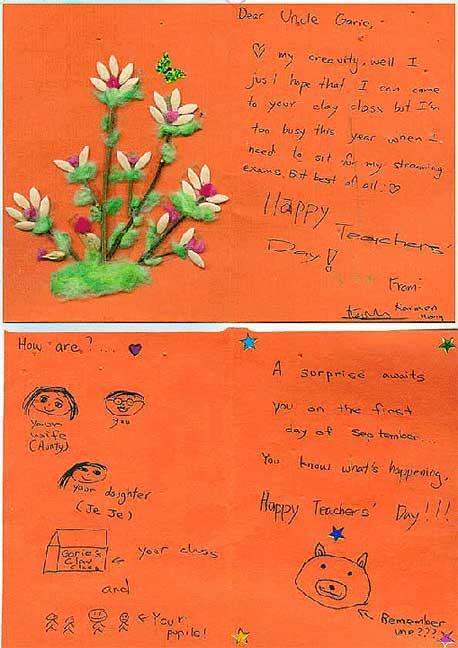 Dear Uncle Garie,
♡ my creavity, well I
just hope that I can come
to your clay class but I'm
too busy this year when I
need to sit for my streaming
exams. But best of all: ♡
Happy
Teachers'
Day!
From:
Karmen
How are?...
your
wife
(Aunty)
you
your daughter
(Je Je)
Garie's
Clay
Class
← your class
and
← Your
pupils!
A surprise awaits
you on the first
day of september...
You know what's happening,
Happy Teachers' Day!!!
← Remember
me???